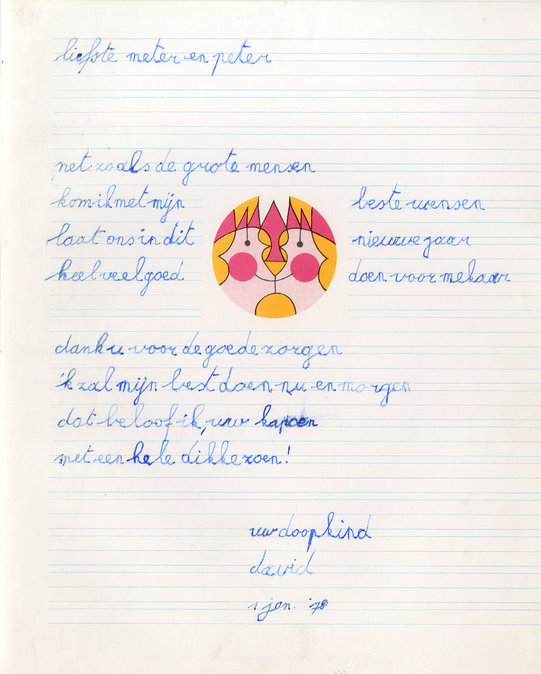 liefste meter en peter
net zoals de grote mensen
kom ik met mijn beste wensen
laat ons in dit nieuwe jaar
heel veel goed doen voor mekaar
dank u voor de goede zorgen
ik zal mijn best doen nu en morgen
dat beloof ik, uw kapoen
met een hele dikke zoen!
uw doopkind
david
1 jan.